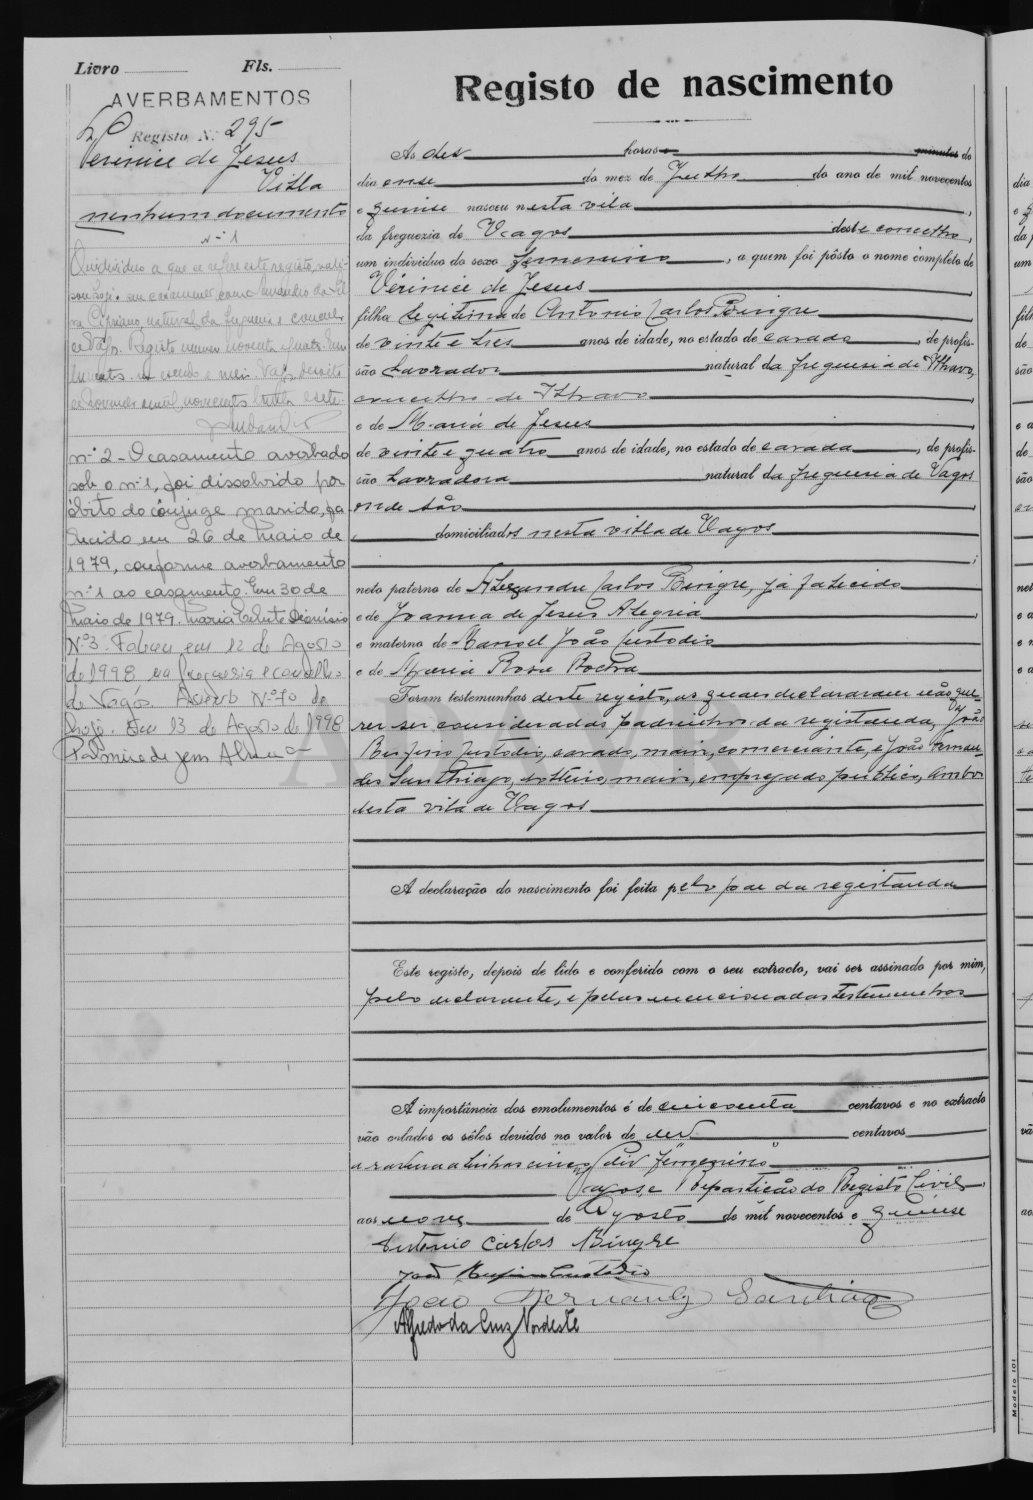 Livro Fls.
AVERBAMENTOS
Registo N.º 295
Verinice de Jesus
Vitla
nenhum documento
n.º 1
O individuo a que se refere este registo,
hoje
natural da freguesia e concelho
de Vagos. Registo numero noventa e quatro.
mil novecentos trinta e sete.
n.º 2 - O casamento averbado
sob o n.º 1, foi dissolvido por
óbito do cônjuge marido, fa
lecido em 26 de Maio de
1979, conforme averbamento
n.º 1 ao casamento. Em 30 de
Maio de 1979. Maria Celeste Dionisio
N.º 3. Faleceu em 12 de Agosto
de 1998 na freguesia e concelho
de Vagos. Assento N.º 70 de
hoje. Em 13 de Agosto de 1998
Registo de nascimento
Ás des horas e minutos do
dia onse do mez de Julho do ano de mil novecentos
e quinse nasceu nesta vila
da freguezia de Vagos deste concelho,
um individuo do sexo femenino, a quem foi pôsto o nome completo de
Verinice de Jesus
filha legitima de Antonio Carlos Bingre
de vinte e tres anos de idade, no estado de casado, de profis-
são Lavrador natural da freguesia de Ilhavo,
concelho de Ilhavo
e de Maria de Jesus
de vinte e quatro anos de idade, no estado de casada, de profis-
são Lavradora natural da freguesia de Vagos
onde são
domiciliados nesta vitla de Vagos
neto paterno de Alexandre Carlos Bingre, já falecido
e de Joanna de Jesus Alegria
e materno de Manoel João Custodio
e de Maria Rosa Rocha
Foram testemunhas deste registo, as quaes declararam não que-
rer ser consideradas padrinhos da registanda, João
Rufino Custodio, casado, maior, comerciante, e João Fernan-
des Santhiago, solteiro, maior, empregado publico, ambos
desta vila de Vagos
A declaração do nascimento foi feita pelo pae da registanda
Este registo, depois de lido e conferido com o seu extracto, vai ser assinado por mim,
pelo declarante, e pelas mencionadas testemunhas
A importância dos emolumentos é de cincoenta centavos e no extracto
vão colados os sêlos devidos no valor de des centavos
a rasura a linhas cinco diz "femenino"
Vagos, e Repartição do Registo Civil,
aos nove de Agosto de mil novecentos e quinse
Antonio Carlos Bingre
João Rufino Custodio
João Fernandes Santhiago
Alfredo da Cruz Nordeste
Modelo 101